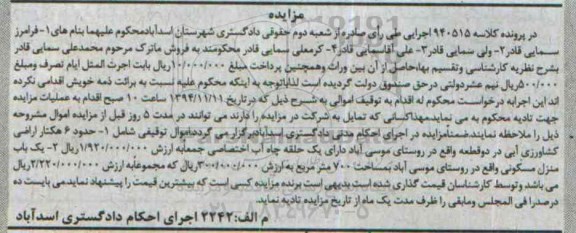 مزایده
در پرونده کلاسه ۹۴۰۵۱۵ اجرایی طی رای صادره از شعبه دوم حقوقی دادگستری شهرستان اسدآباد محکوم علیهما بنام های ۱- فرامرز
سمایی قادر ۲- ولی سمایی قادر ۳- علی آقاسمایی قادر ۴- کرمعلی سمایی قادر محکومند به فروش ماترک مرحوم محمدعلی سمایی قادر
بشرح نظریه کارشناسی وتقسیم بهاءحاصل از آن بین وراث وهمچنین پرداخت مبلغ ۱۰/۰۰۰/۰۰۰ ریال بابت اجرت المثل ایام تصرف ومبلغ
۵۰۰/۰۰۰ ریال نیم عشردولتی درحق صندوق دولت گردیده است لذاباتوجه به اینکه محکوم علیه نسبت به برائت ذمه خویش اقدامی نکرده
اند این اجرابه درخواست محکوم له اقدام به توقیف اموالی به شرح ذیل که درتاریخ ۱۳۹۴/۱۱/۱۱ ساعت ۱۰ صبح اقدام به عملیات مزایده
جهت تادیه محکوم به می نماید مهذاکسانی که تمایل به شرکت در مزایده را دارند می توانند در مدت ۵ روز قبل از مزایده اموال مشروحه
ذیل را ملاحظه نمایند.ضمنأمزایده در اجرای احکام مدنی دادگستری اسدآبادبرگزار می گردد اموال توقیفی شامل ۱- حدود ۶ هکتار اراضی
کشاورزی آبی در دوقطعه واقع در روستای موسی آباد دارای یک حلقه چاه آب اختصاصی جمعأبه ارزش ۱/۹۲۰/۰۰۰/۰۰۰ ریال ۲- یک باب
منزل مسکونی واقع در روستای موسی آباد بمساحت ۷۰۰ متر مربع به ارزش ۳۰۰/۰۰۰/۰۰۰ ریال که مجموعأبه ارزش ۲/۲۲۰/۰۰۰/۰۰۰ ریال
می باشد وتوسط کارشناسان قیمت گذاری شده است.بدیهی است برنده مزایده کسی است که بیشترین قیمت را پیشنهاد نمایدمی بایست ده
درصدرا فی المجلس ومابقی را ظرف مدت یک ماه از تاریخ مزایده تادیه نماید.
م الف: ۲۲۴۲ اجرای احکام دادگستری اسدآباد